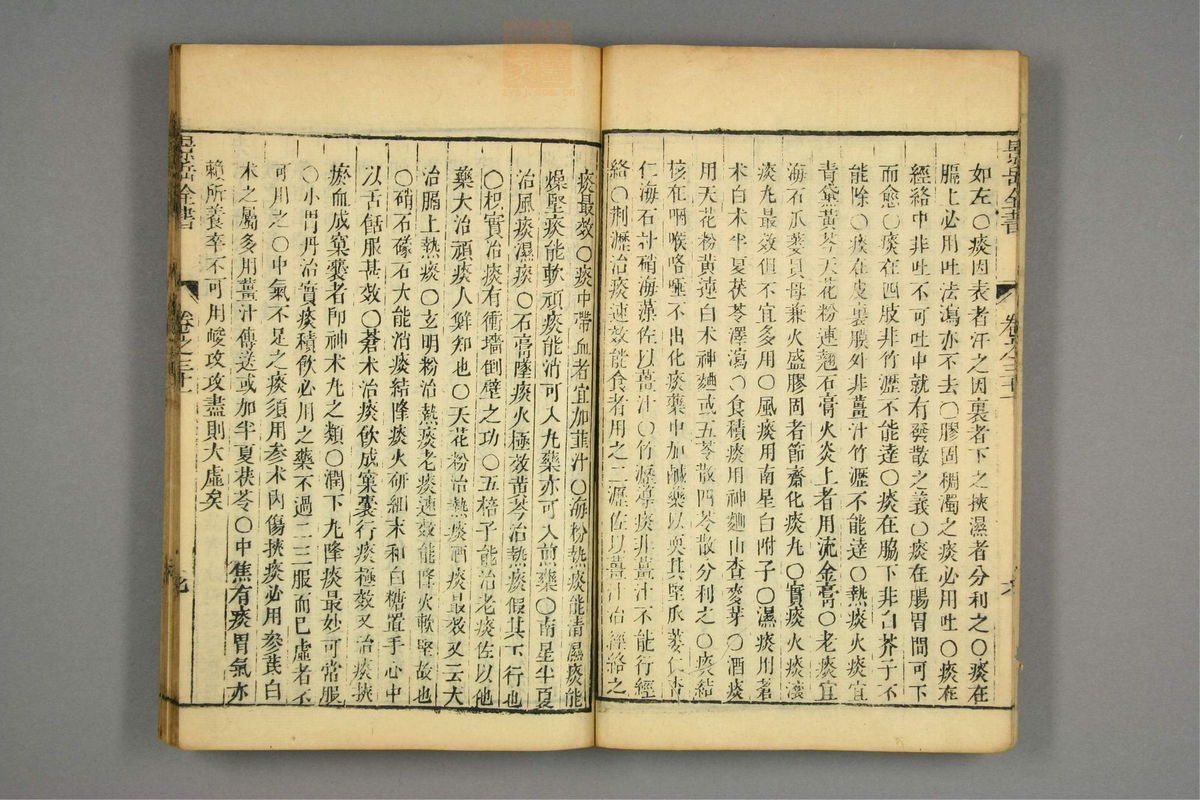 景岳全書
卷之三十一
如左○痰因表者汗之因裏者下之挾濕者分利之○痰在
膈上必用吐法瀉亦不去○膠固稠濁之痰必用吐○痰在
經絡中非吐不可吐中就有發散之義○痰在腸胃間可下
而愈○痰在四肢非竹瀝不能達○痰在脇下非白芥子不
能除○痰在皮裏膜外非薑汁竹瀝不能達○熱痰火痰宜
青黛黄芩天花粉連翹石膏火炎上者用流金膏○老痰宜
海石瓜蔞貝母兼火盛膠固者節齋化痰丸○實痰火痰滾
痰丸最效但不宜多用○風痰用南星白附子○濕痰用蒼
术白术半夏茯苓澤瀉○食積痰用神麯山查麥芽○酒痰
用天花粉黄連白术神麯或五苓散四苓散分利之○痰結
核在咽喉咯唾不出化痰藥中加鹹藥以耎其堅瓜蔞仁杏
仁海石計硝海藻佐以薑汁○竹瀝導痰非薑汁不能行經
絡○荆瀝治痰速效能食者用之二瀝佐以薑汁治經絡之
痰最效○痰中帶血者宜加韮汁○海粉熱痰能清濕痰能
燥堅痰能軟頑痰能消可入丸藥亦可入煎藥○南星半夏
治風痰濕痰○石膏墜痰火極效黄芩治熱痰假其下行也
○枳實治痰有衝墻倒壁之功○五棓子能治老痰佐以他
藥大治頑痰人鮮知也○天花粉治熱痰酒痰最效又云大
治膈上熱痰○玄明粉治熱痰老痰速效能降火軟堅故也
○硝石礞石大能消痰結降痰火硏細末和白糖置手心中
以舌餂服甚效○蒼术治痰飲成窠囊行痰極效又治痰挾
瘀血成窠囊者即神术丸之類○潤下丸降痰最妙可常服
○小胃丹治實痰積飲必用之藥不過二三服而已虚者不
可用之○中氣不足之痰須用參术内傷挾痰必用參茋白
术之屬多用薑汁傳送或加半夏茯苓○中焦有痰胃氣亦
賴所養卒不可用峻攻攻盡則大虚矣
景岳全書
卷之三十一